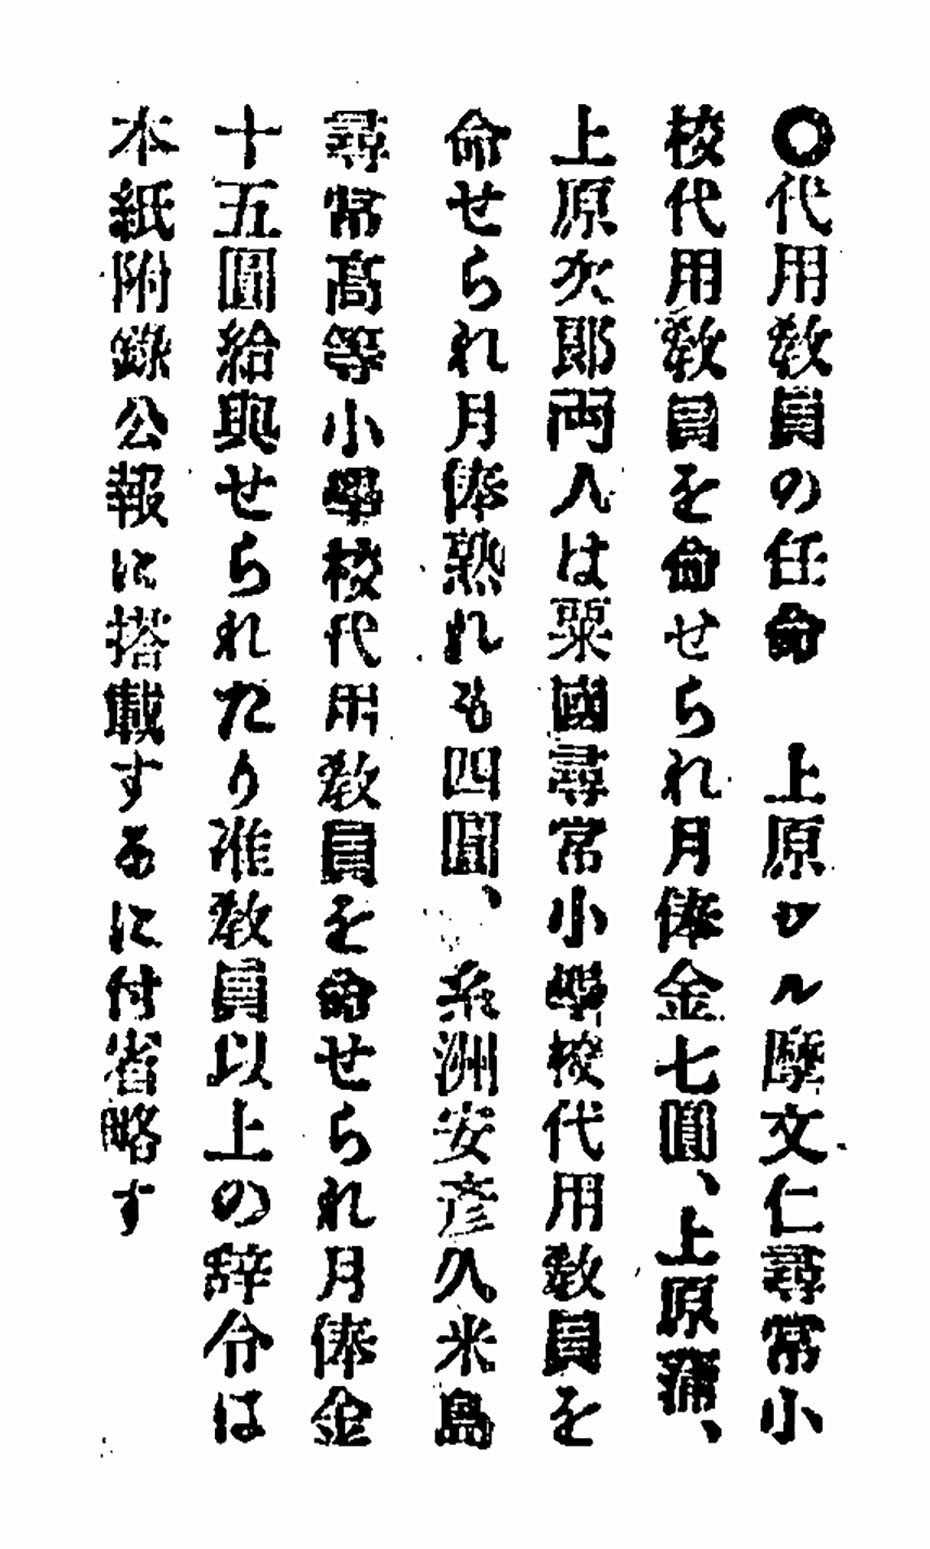 〇代用敎員の任命　上原ツル摩文仁尋常小
校代用敎員を命せられ月俸金七圓、上原蒲、
上原次郞両人は粟國尋常小學校代用敎員を
命せられ月俸熟れも四圓、糸洲安彦久米島
尋常高等小學校代用敎員を命せられ月俸金
十五圓給與せられたり准敎員以上の辞令は
本紙附錄公報に搭載するに付省略す